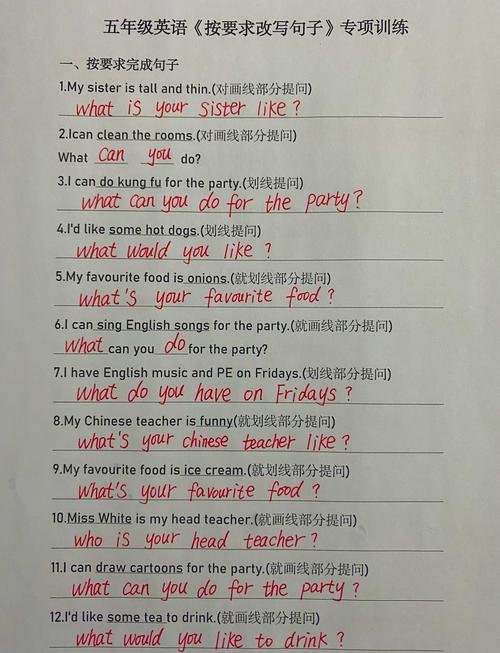 五年级英语《按要求改写句子》专项训练
一、按要求完成句子
1.My sister is tall and thin.(对画线部分提问)
what is your sister like?
2.Ican clean the rooms.(对画线部分提问)
What can you do?
3.I can do kung fu for the party.(划线提问)
what can you do for the party?
4.I'd like some hot dogs.(划线提问)
what would you like?
5.My favourite food is onions.(就划线部分提问)
what's your favourite food?
6.I can sing English songs for the party.(就画线部分提问)
what can you do for the party?
7.I have English music and PE on Fridays.(划线部分提问)
what do you have on Fridays?
8.My Chinese teacher is funny(就划线部分提问)
what's your chinese teacher like?
9.My favourite food is ice cream.(就划线部分提问)
what's your favourite food?
10.Miss White is my head teacher.(就画线部分提问)
who is your head teacher?
11.I can draw cartoons for the party.(就画线部分提问)
what can you do for the party?
12.I'd like some tea to drink.(就画线部分提问)
what would you like to drink?